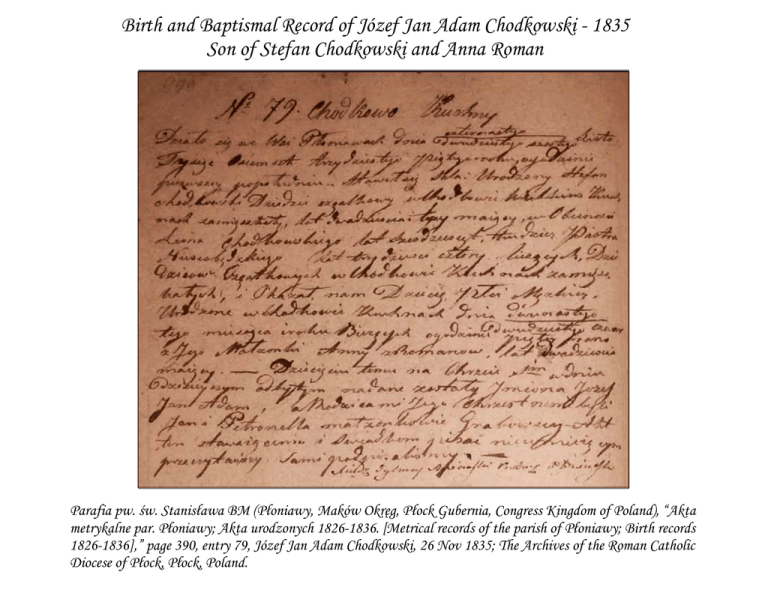 Birth and Baptismal Record of Józef Jan Adam Chodkowski - 1835
Son of Stefan Chodkowski and Anna Roman
390
№ 79. Chodkowo Kuchny
czternastego
Działo się we Wsi Płoniawach dnia dwudziestego szóstego
Tysiąc Osiemset trzydziestego piątego roku, o godzinie
pierwszej popołudniu. Stawił się Urodzony Stefan
Chodkowski Dziedzic cząstkowy w Chodkowie
nach zamieszkały, lat dwadzieścia trzy mający, w Obecności
Leona Chodkowskiego lat sześćdziesiąt, tudzież Piotra
lat trzydzieści cztery liczących, Dzie
dziców Cząstkowych w Chodkowie Kuchnach zamiesz
kałych, i Okazał nam Dziecię Płci Męskiej,
Urodzone w Chodkowie Kuchnach dnia dwunastego
tego miesiąca i roku Bieżących o godzinie
z Jego Małżonki Anny z Romanow, lat dwadzieścia
mającej. — Dziecięciu temu na Chrzcie Stm w dniu
dzisiejszym odbytym nadane zostały Imiona Józef
Jan Adam, a Rodzicami Jego Chrzestnemi byli
Jan i Petronella małżonkowie Grabowscy - Akt
ten stawiającemu i świadkom pisać nieumiejącym
przeczytawszy Sami podpisaliśmy. —
Parafia pw. św. Stanisława BM (Płoniawy, Maków Okręg, Płock Gubernia, Congress Kingdom of Poland), “Akta
metrykalne par. Płoniawy; Akta urodzonych 1826-1836. [Metrical records of the parish of Płoniawy; Birth records
1826-1836],” page 390, entry 79, Józef Jan Adam Chodkowski, 26 Nov 1835; The Archives of the Roman Catholic
Diocese of Płock, Płock, Poland.